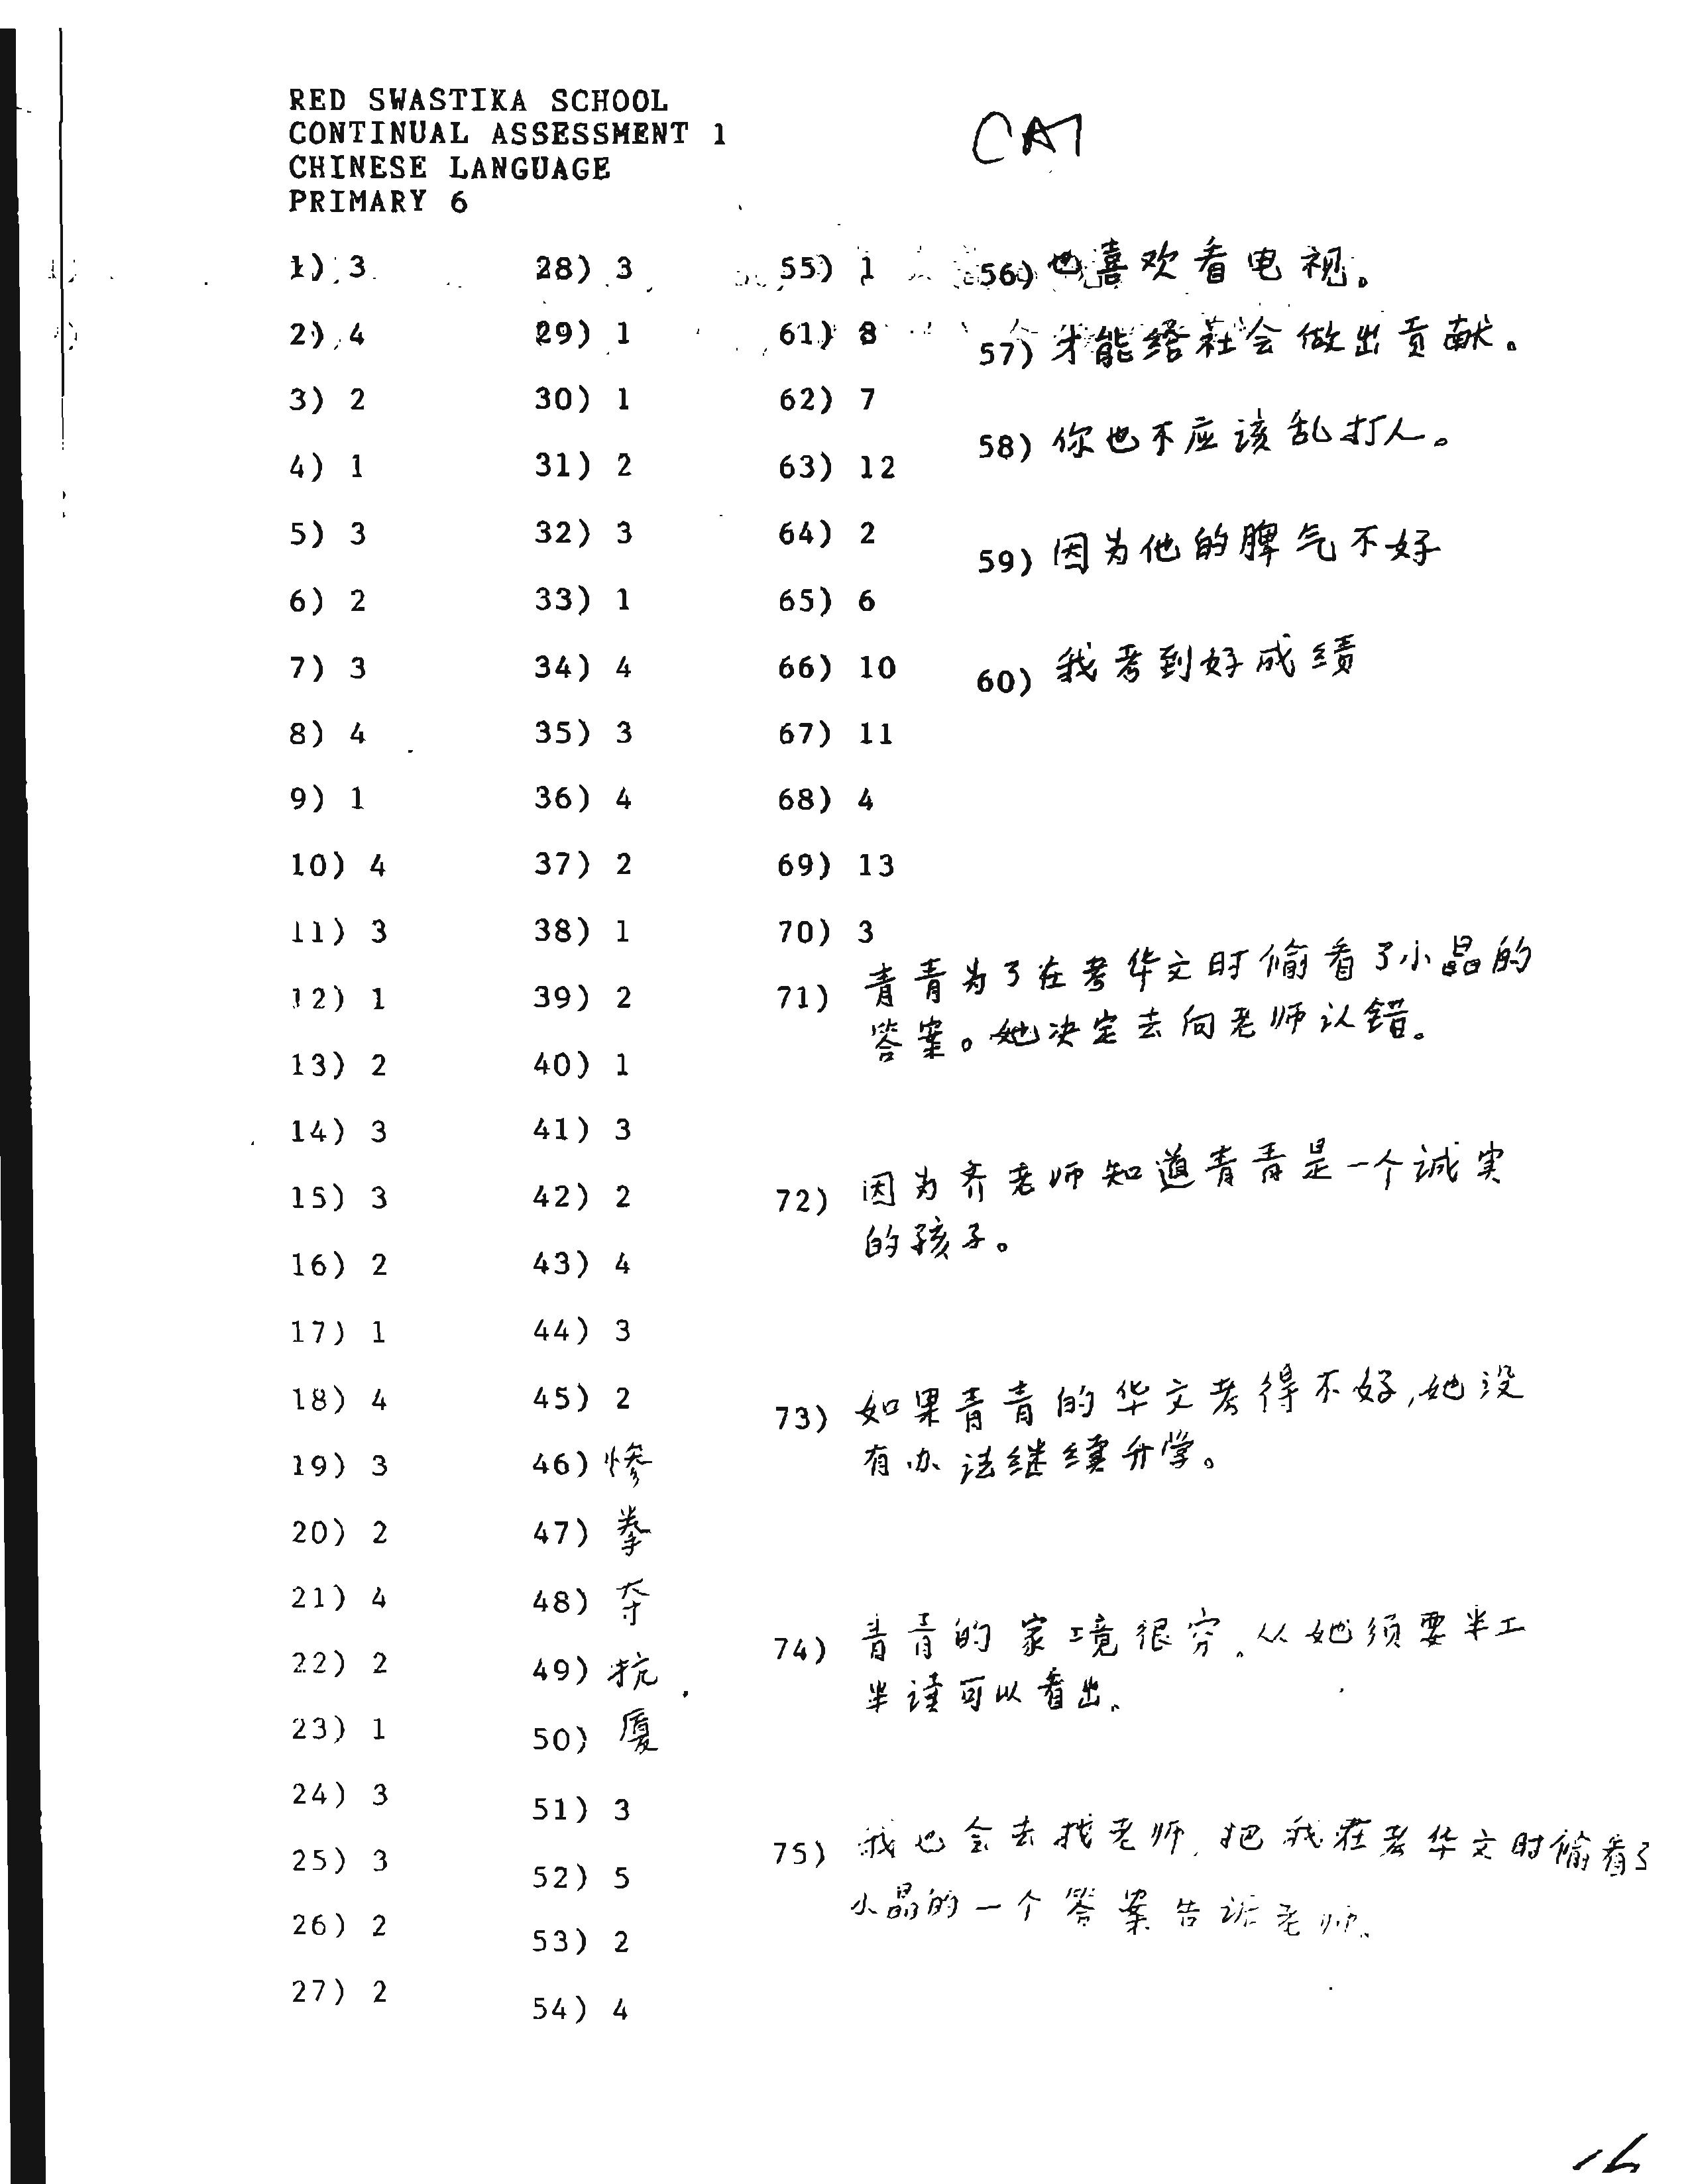 RED SWASTIKA SCHOOL
CONTINUAL ASSESSMENT 1
CHINESE LANGUAGE
PRIMARY 6
CA1
1) 3
2) 4
3) 2
4) 1
5) 3
6) 2
7) 3
8) 4
9) 1
10) 4
11) 3
12) 1
13) 2
14) 3
15) 3
16) 2
17) 1
18) 4
19) 3
20) 2
21) 4
22) 2
23) 1
24) 3
25) 3
26) 2
27) 2
28) 3
29) 1
30) 1
31) 2
32) 3
33) 1
34) 4
35) 3
36) 4
37) 2
38) 1
39) 2
40) 1
41) 3
42) 2
43) 4
44) 3
45) 2
46) 惨
47) 拳
48) 夺
49) 抗
50) 厦
51) 3
52) 5
53) 2
54) 4
55) 1
56) 也喜欢看电视。
57) 才能给社会做出贡献。
58) 你也不应该乱打人。
59) 因为他的脾气不好
60) 我考到好成绩
61) 8
62) 7
63) 12
64) 2
65) 6
66) 10
67) 11
68) 4
69) 13
70) 3
71) 青青为了在考华文时偷看了小晶的
答案。她决定去向老师认错。
72) 因为齐老师知道青青是一个诚实
的孩子。
73) 如果青青的华文考得不好,她没
有办法继续升学。
74) 青青的家境很穷。从她须要半工
半读可以看出。
75) 我也会去找老师,把我在考华文时偷看了
小晶的一个答案告诉老师。